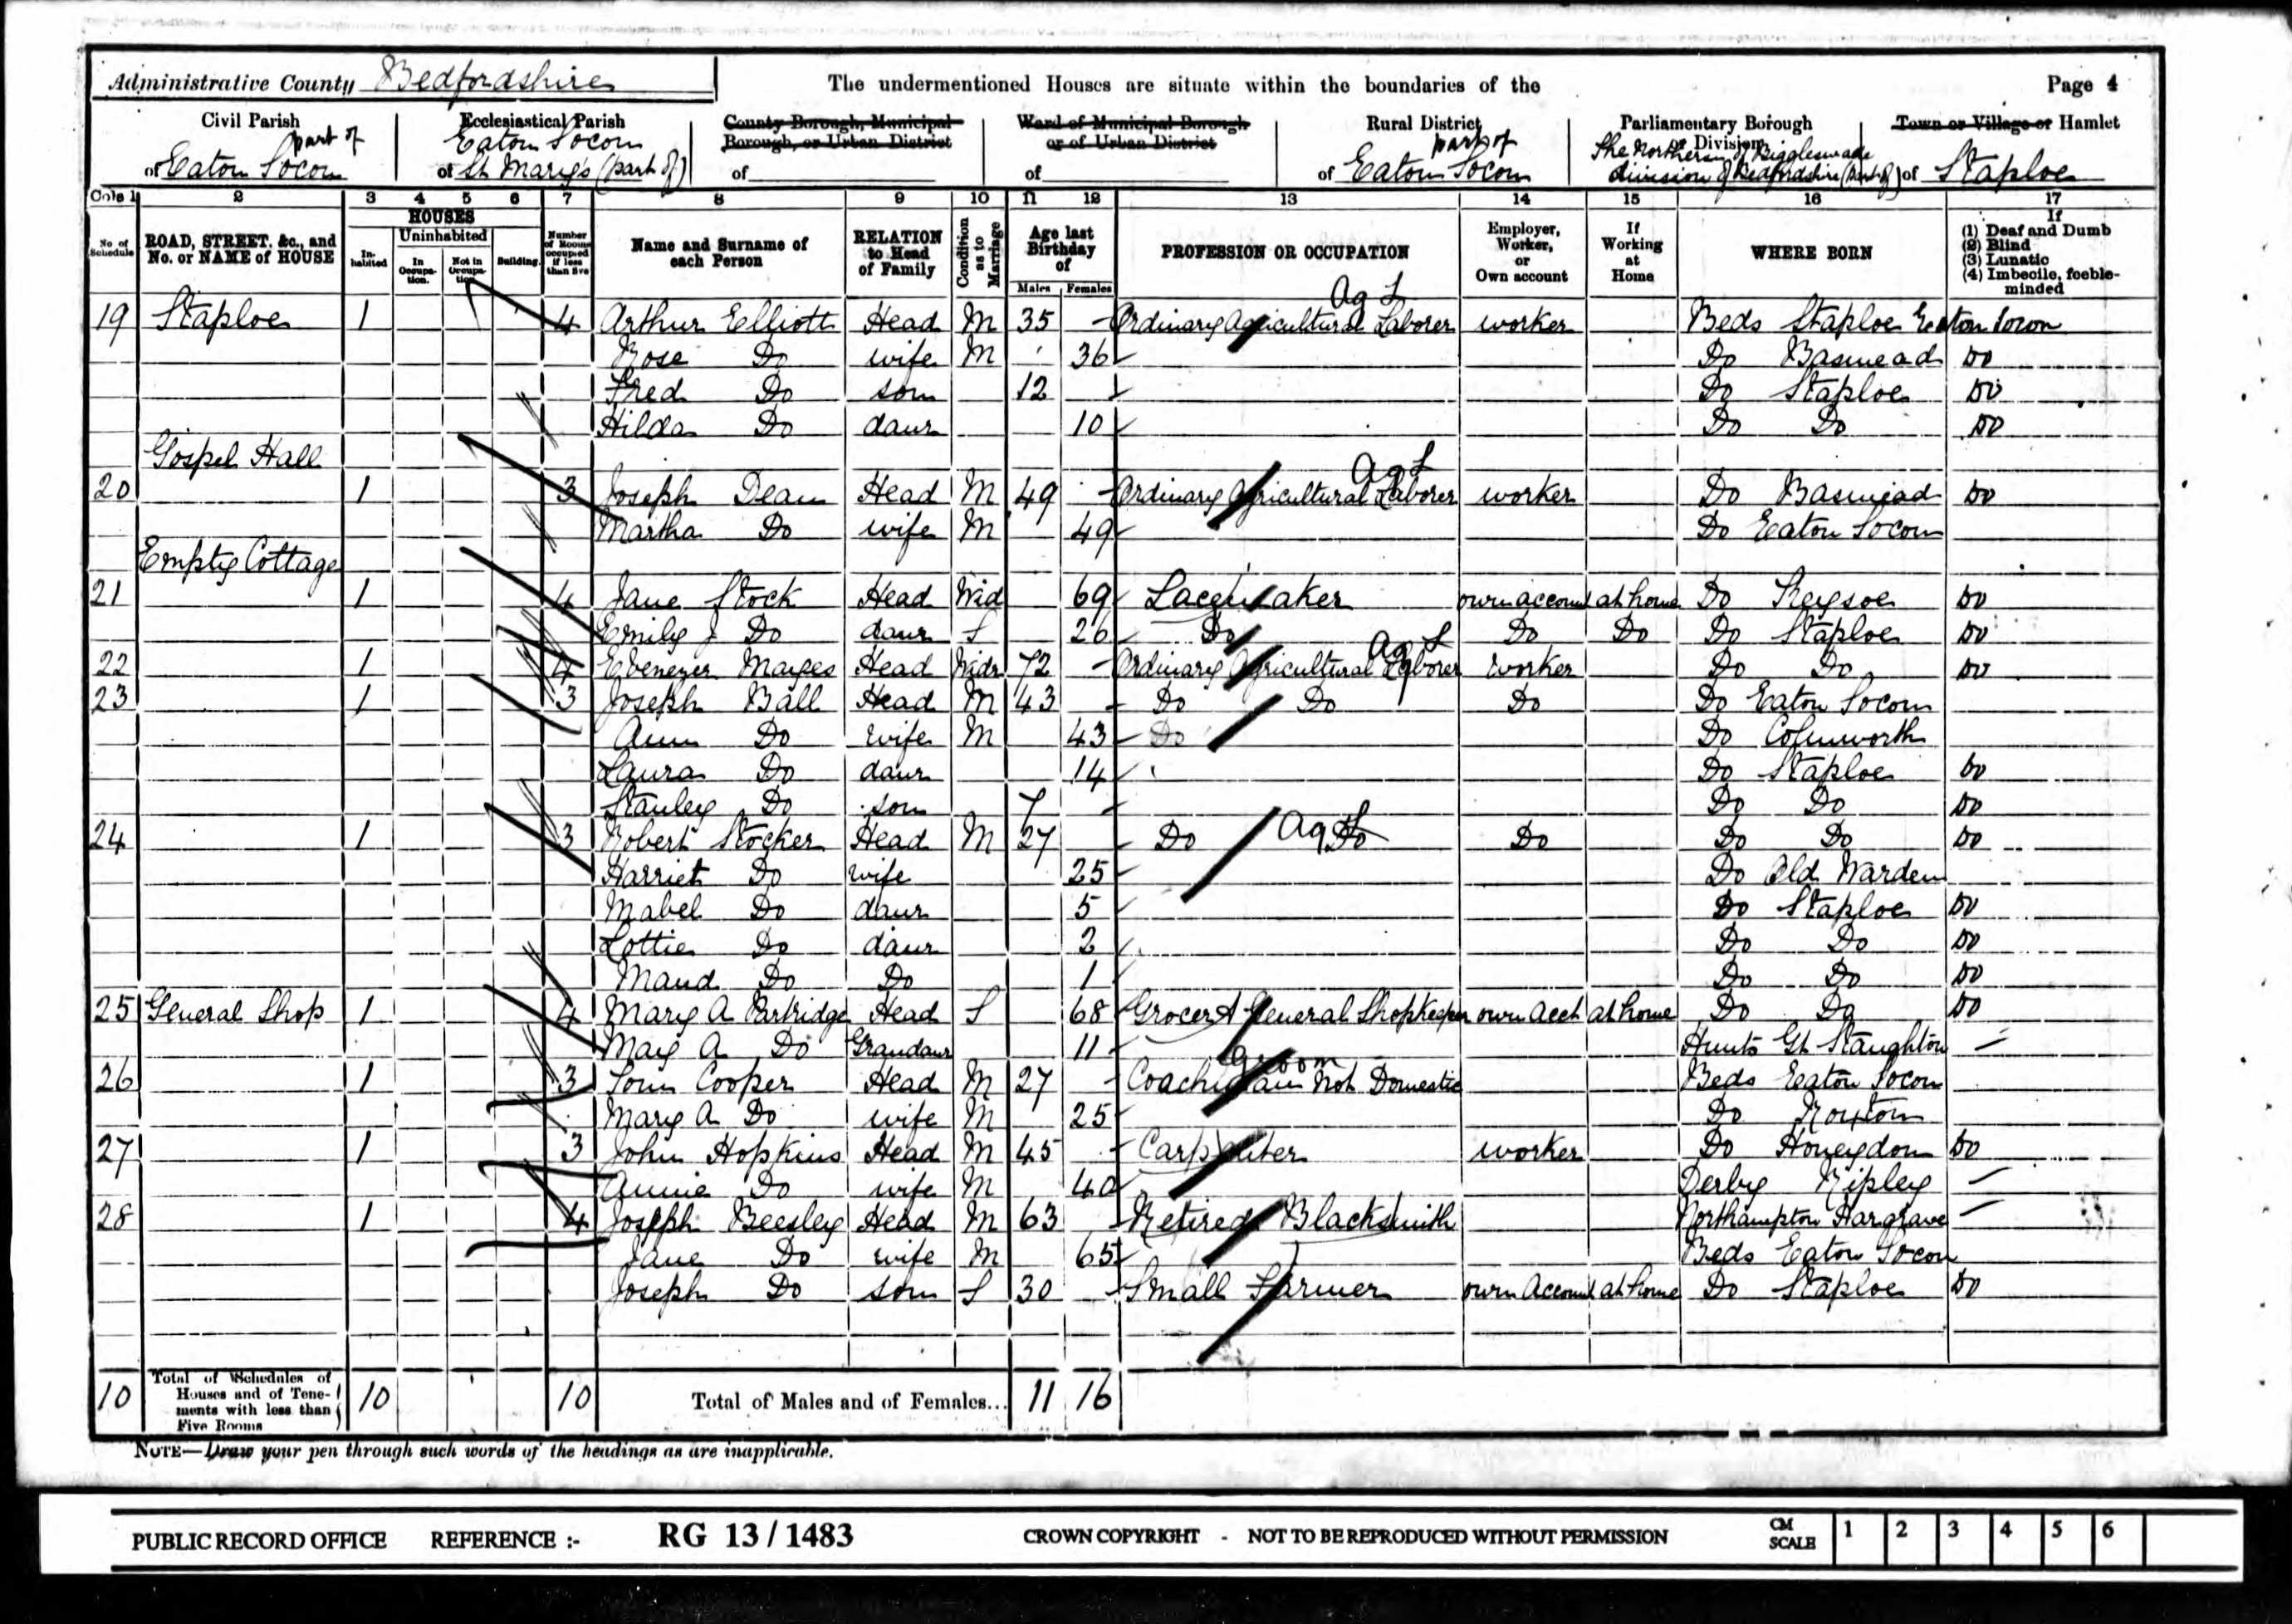 Administrative County Bedfordshire The undermentioned Houses are situate within the boundaries of the Page 4
Civil Parish Ecclesiastical Parish County Borough, Municipal Borough, or Urban District Ward of Municipal Borough or of Urban District Rural District Parliamentary Borough or Division Town or Village or Hamlet
part of of Eaton Socon Eaton Socon of St Mary's (part of) of of part of of Eaton Socon The Northern or Biggleswade division of Bedfordshire (part of) of Staploe
Cols 1 2 3 4 5 6 7 8 9 10 11 12 13 14 15 16 17
No of Schedule ROAD, STREET, &c., and No. or NAME of HOUSE HOUSES Inhabited Uninhabited In Occupation. Not in Occupation. Building. Number of Rooms occupied if less than five Name and Surname of each Person RELATION to Head of Family Condition as to Marriage Age last Birthday of Males Females PROFESSION OR OCCUPATION Employer, Worker, or Own account If Working at Home WHERE BORN If (1) Deaf and Dumb (2) Blind (3) Lunatic (4) Imbecile, feeble-minded
Ag L
19 Staploe 1 4 Arthur Elliott Head M 35 Ordinary Agricultural Laborer worker Beds Staploe Eaton Socon
Rose Do wife M 36 Do Basmead Do
Fred Do son 12 Do Staploe Do
Hilda Do daur 10 Do Do Do
Gospel Hall
Ag L
20 1 3 Joseph Dean Head M 49 Ordinary Agricultural Laborer worker Do Basmead Do
Martha Do wife M 49 Do Eaton Socon
Empty Cottage
21 1 4 Jane Stock Head Wid 69 Lacemaker own account at home Do Keysoe Do
Emily J Do daur S 26 Do Do Do Do Staploe Do
Ag L
22 1 4 Ebenezer Mayes Head Widr 72 Ordinary Agricultural Laborer worker Do Do Do
23 1 3 Joseph Ball Head M 43 Do Do Do Do Eaton Socon
Ann Do wife M 43 Do Do Colmworth
Laura Do daur 14 Do Staploe Do
Stanley Do son 7 Do Do Do
24 1 3 Robert Stocker Head M 27 Do Ag L Do Do Do Do Do
Harriet Do wife 25 Do Old Warden
Mabel Do daur 5 Do Staploe Do
Lottie Do daur 2 Do Do Do
Maud Do Do 1 Do Do Do
25 General Shop 1 4 Mary A Partridge Head S 68 Grocer & General Shopkeeper own acct at home Do Do Do
May A Do Grandaur 11 Hunts Gt Staughton
Groom
26 1 3 Tom Cooper Head M 27 Coachman Not Domestic Beds Eaton Socon
Mary A Do wife M 25 Do Roxton
27 1 3 John Hopkins Head M 45 Carpenter worker Do Honeydon Do
Annie Do wife M 40 Derby Ripley
28 1 4 Joseph Beesley Head M 63 Retired Blacksmith Northampton Hargrave
Jane Do wife M 65 Beds Eaton Socon
Joseph Do son S 30 Small Farmer own Account at home Do Staploe Do
10 Total of Schedules of Houses and of Tenements with less than Five Rooms 10 10 Total of Males and of Females... 11 16
NOTE—Draw your pen through such words of the headings as are inapplicable.
PUBLIC RECORD OFFICE REFERENCE :- RG 13 / 1483 CROWN COPYRIGHT - NOT TO BE REPRODUCED WITHOUT PERMISSION CM SCALE 1 2 3 4 5 6